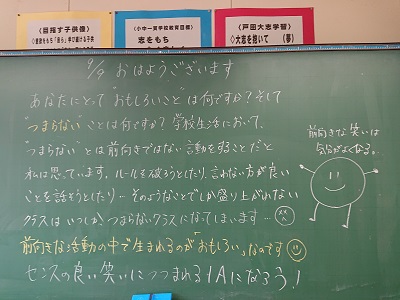 《目指す子供像》
《小中一貫学校教育目標》
志をもち
《戸田大志学習》
◇大志を抱いて (夢)
9/9 おはようございます
あなたにとって"おもしろいこと"は何ですか？そして
"つまらない"ことは何ですか？学校生活において、
"つまらない"とは前向きではない言動をすることだと
私は思っています。ルールを破ろうとしたり、言わない方が良い
ことを話そうとしたり…そのようなことでしか盛り上がれない
クラスはいつしか、つまらないクラスになってしまいます…
前向きな活動の中で生まれるのが「おもしろい」なのです
センスの良い笑いにつつまれる1Aになろう！
前向きな笑いは
気分がよくなる。